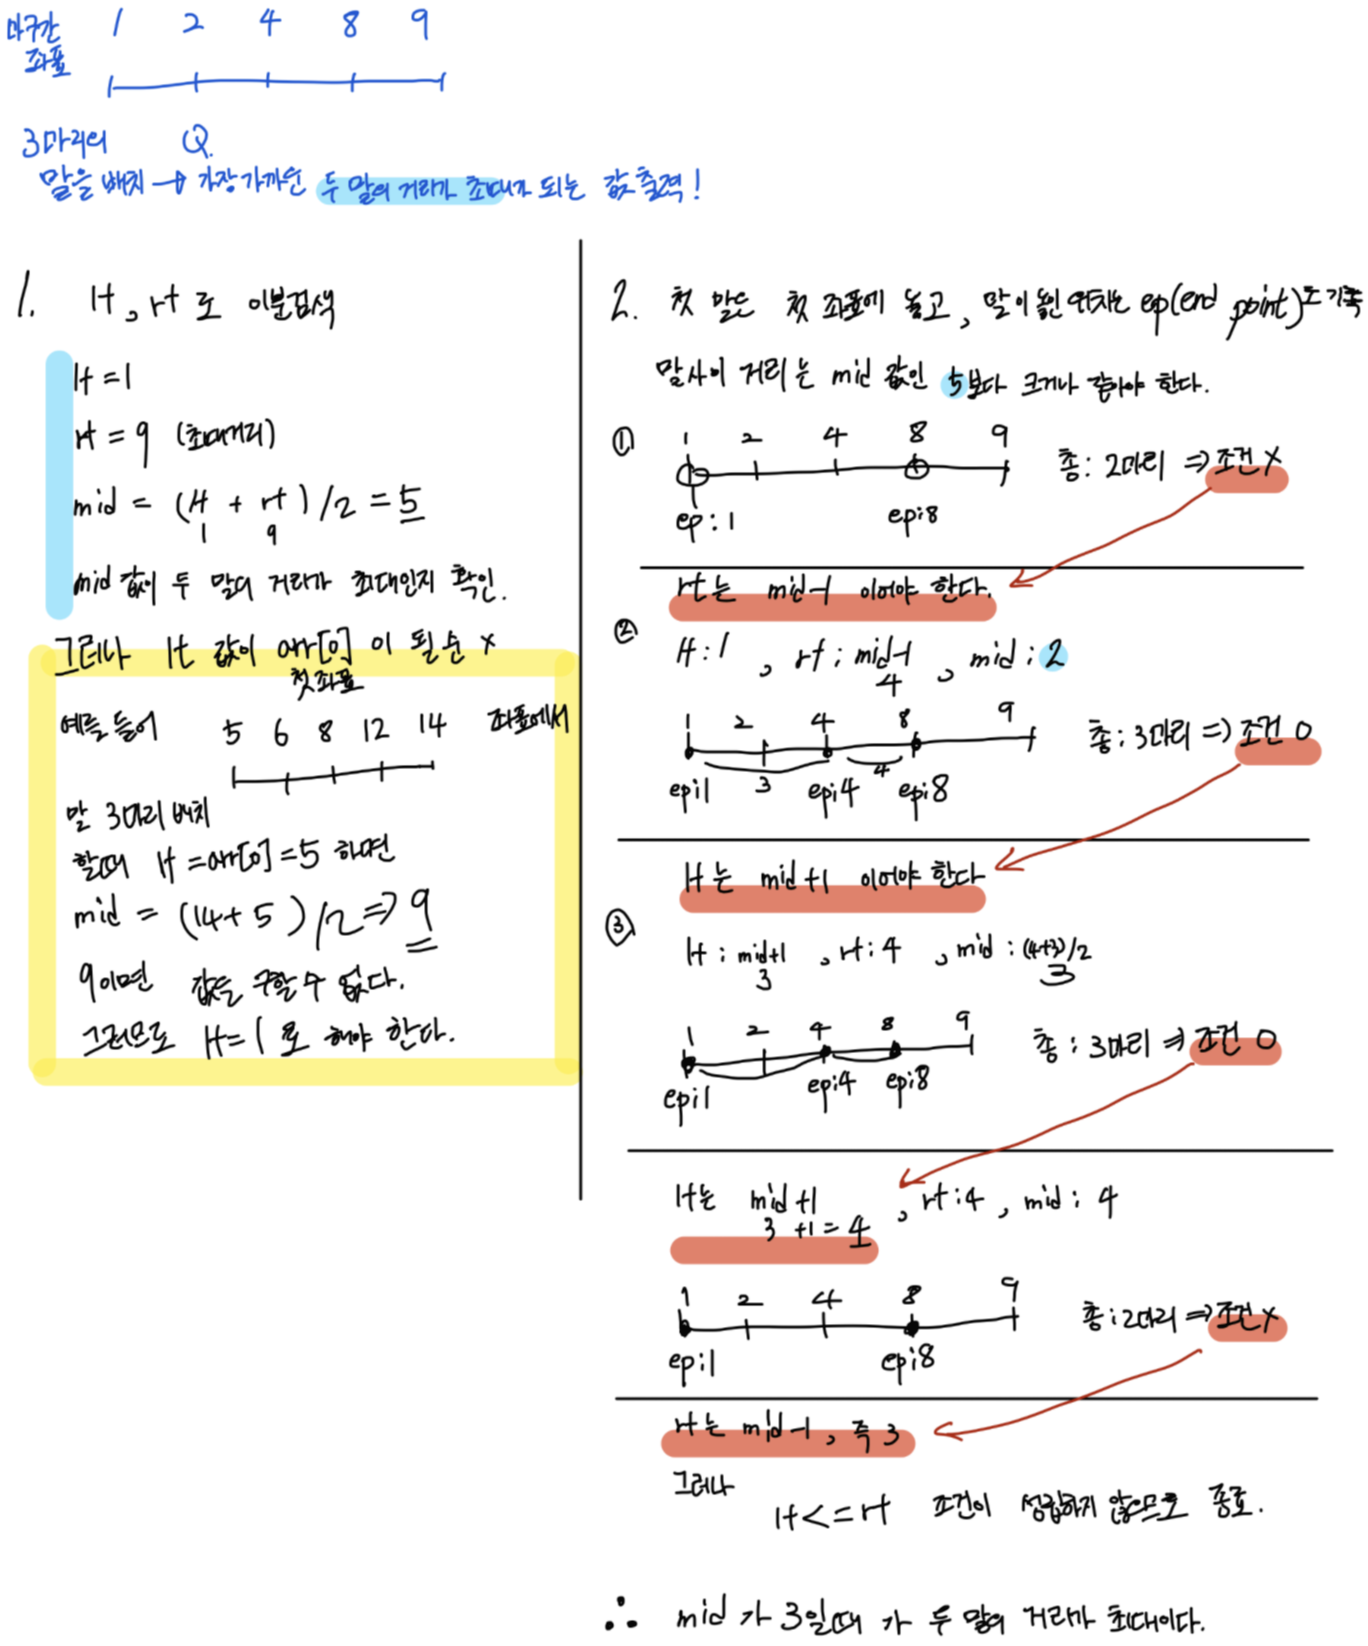 마구간 1 2 4 8 9
좌표
3마리의 Q.
말을 배치 → 가장 가까운 두 말의 거리가 최대가 되는 값 출력!
1. lt, rt 로 이분검색
lt = 1
rt = 9 (최대거리)
mid = (lt + rt) / 2 = 5
1 9
mid 값이 두 말의 거리가 최대인지 확인.
그러나 lt 값이 arr[0] 이 될순 x
첫좌표
예를 들어 5 6 8 12 14 좌표에서
말 3마리 배치
할때 lt = arr[0] = 5 하면
mid = (14 + 5) / 2 => 9
9이면 값을 구할 수 없다.
그러므로 lt = 1 로 해야 한다.
2. 첫 말은 첫 좌표에 놓고, 말이 놓인 위치는 ep(end point)로 기록
말사이 거리는 mid 값인 5보다 크거나 같아야 한다.
① 1 2 4 8 9
총: 2마리 => 조건 X
ep: 1 ep: 8
rt는 mid-1 이어야 한다.
② lt: 1, rt: mid-1, mid: 2
4
1 2 4 8 9
총: 3마리 => 조건 O
3 4
ep: 1 ep: 4 ep: 8
lt는 mid+1 이어야 한다
③ lt: mid+1, rt: 4, mid: (4+3)/2
3 3
1 2 4 8 9
총: 3마리 => 조건 O
ep: 1 ep: 4 ep: 8
lt는 mid+1, rt: 4, mid: 4
3 +1 = 4
1 2 4 8 9
총: 2마리 => 조건 X
ep: 1 ep: 8
rt는 mid-1, 즉 3
그러나 lt <= rt 조건이 성립하지 않으므로 종료.
∴ mid 가 3일때 가 두 말의 거리가 최대이다.